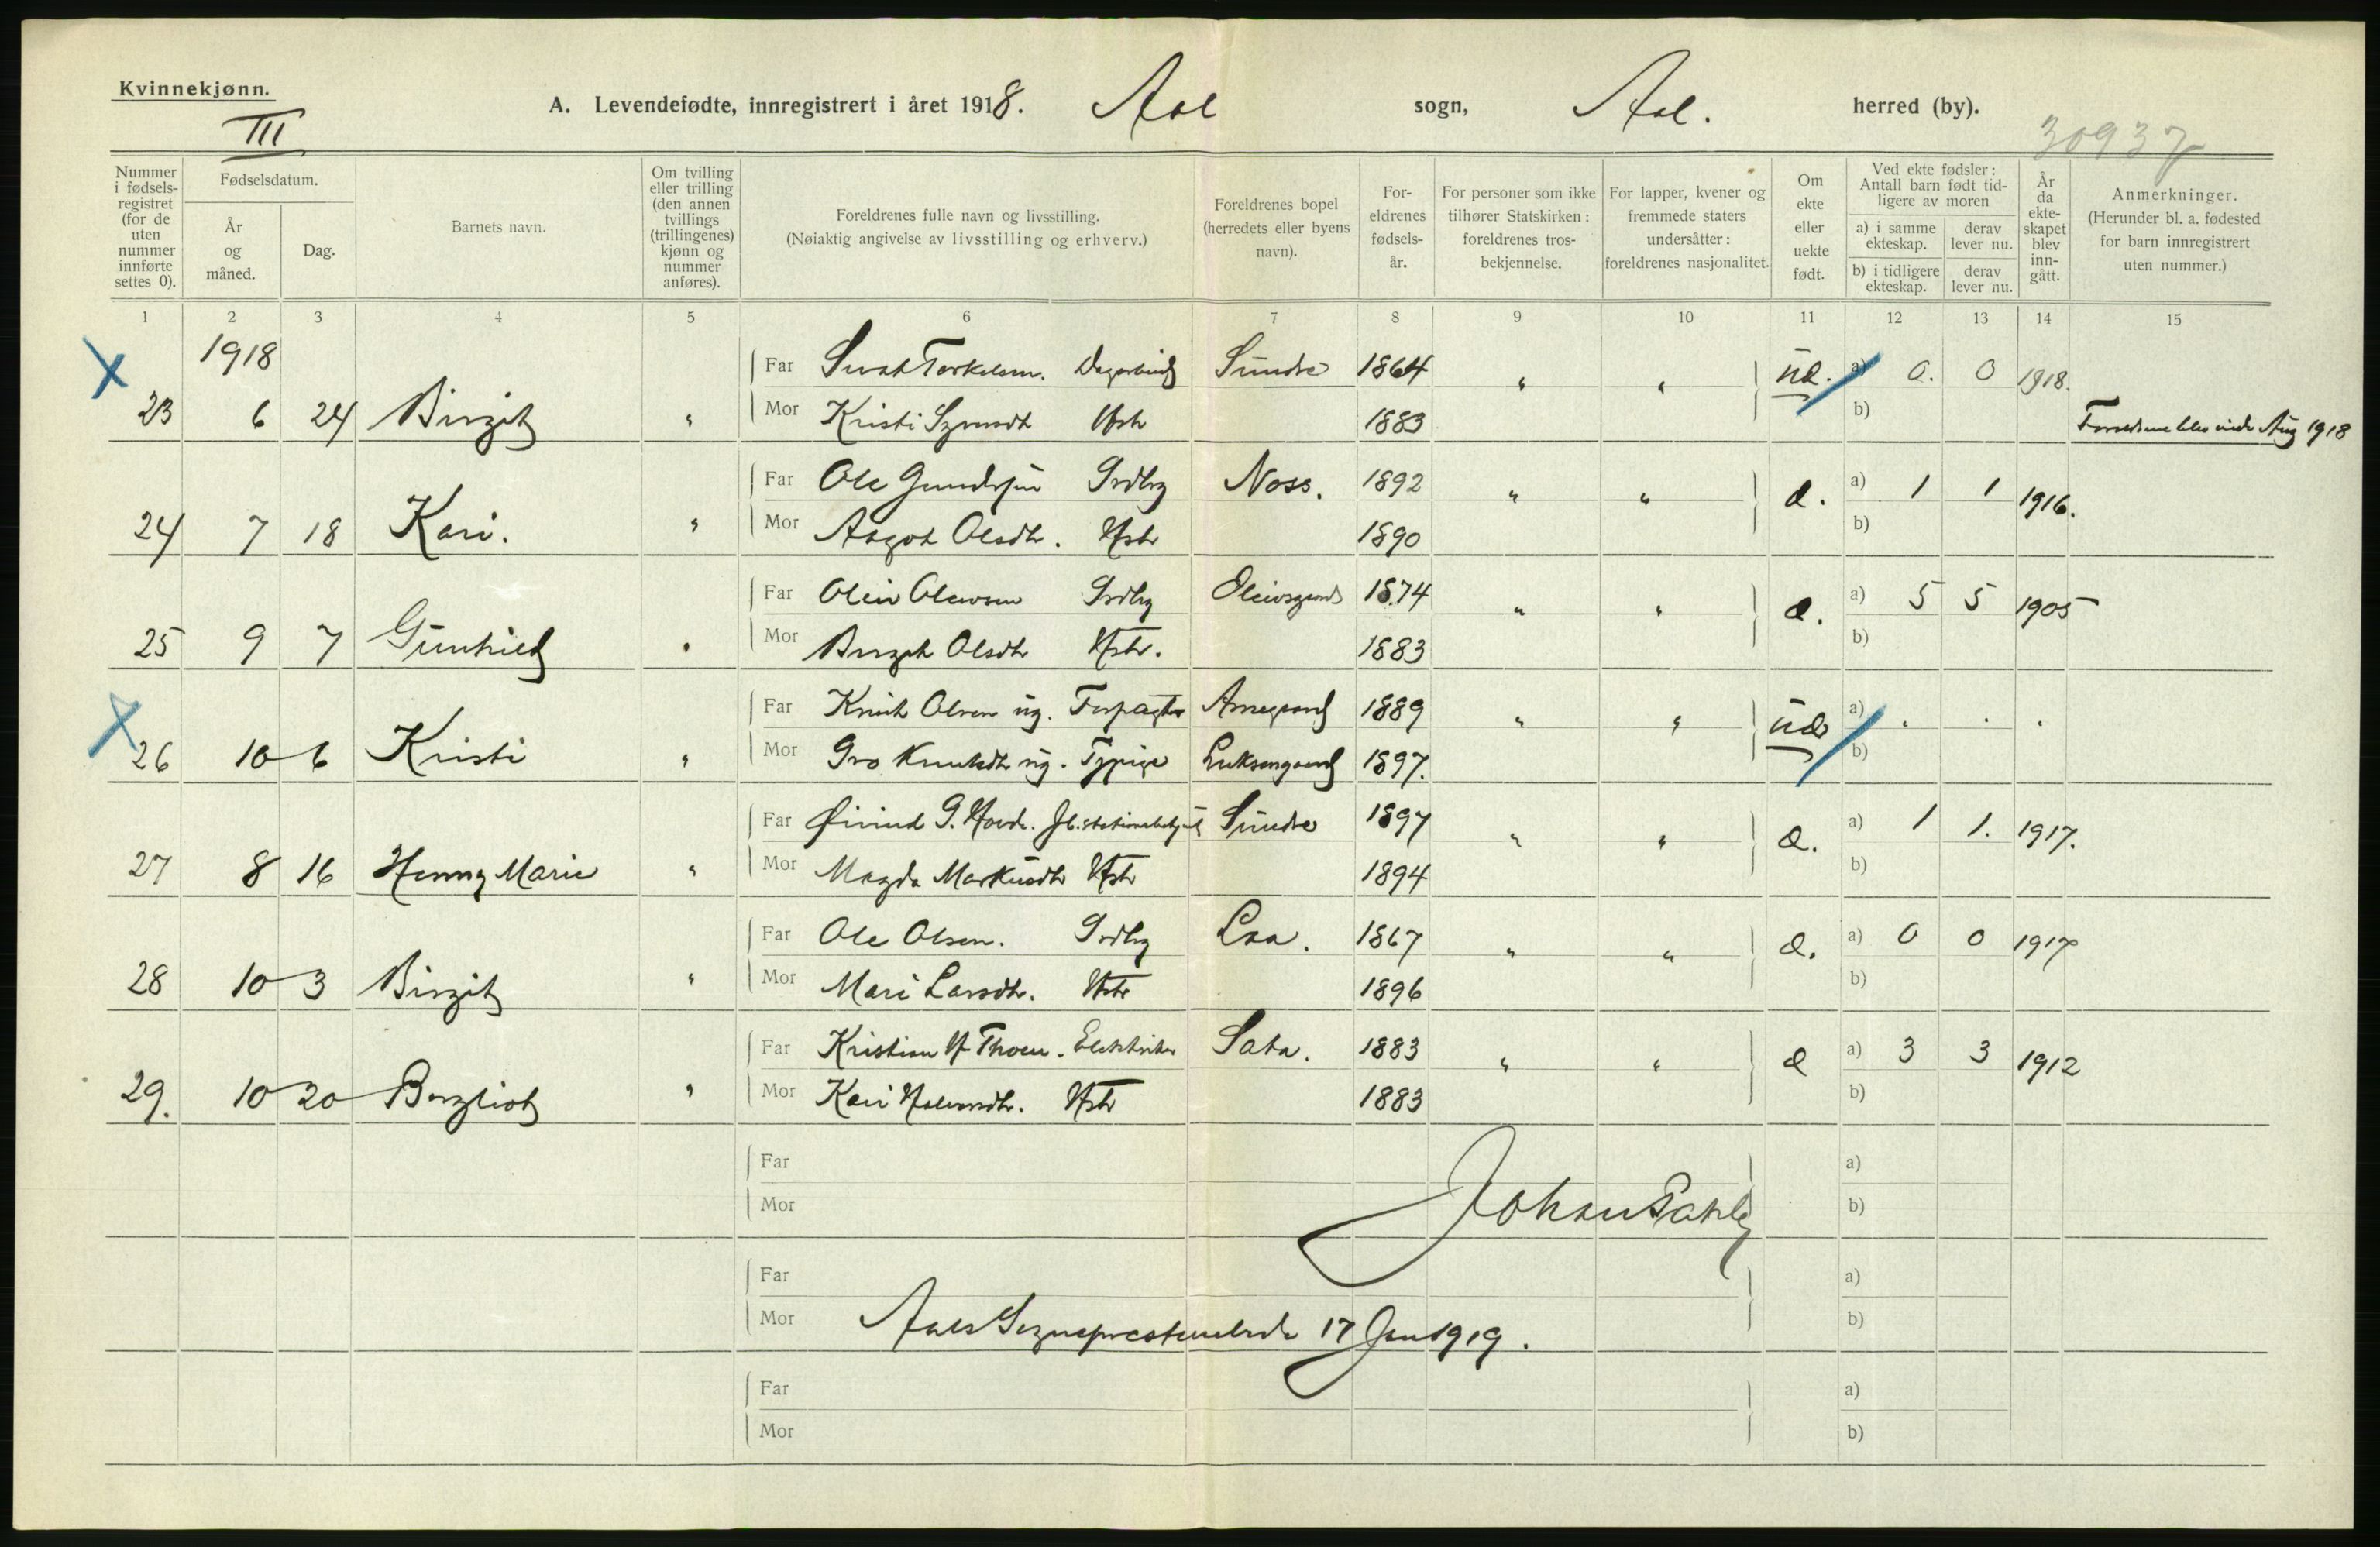 Kvinnekjønn.
III
A. Levendefødte, innregistrert i året 1918. Aal sogn, Aal. herred (by).
30937
Nummer i fødsels-registret (for de uten nummer innførte settes 0).
Fødselsdatum.
År og måned.
Dag.
Barnets navn.
Om tvilling eller trilling (den annen tvillings (trillingenes) kjønn og nummer anføres).
Foreldrenes fulle navn og livsstilling. (Nøiaktig angivelse av livsstilling og erhverv.)
Foreldrenes bopel (herredets eller byens navn).
For-eldrenes fødsels-år.
For personer som ikke tilhører Statskirken: foreldrenes tros-bekjennelse.
For lapper, kvener og fremmede staters undersåtter: foreldrenes nasjonalitet.
Om ekte eller uekte født.
Ved ekte fødsler: Antall barn født tid-ligere av moren
a) i samme ekteskap.
derav lever nu.
b) i tidligere ekteskap.
derav lever nu.
År da ekte-skapet blev inn-gått.
Anmerkninger. (Herunder bl. a. fødested for barn innregistrert uten nummer.)
1 2 3 4 5 6 7 8 9 10 11 12 13 14 15
1918
Far Torkelsen. Sundre 1864 " " a) 0. 0 1918.
23 6 24 Birgit " Mor Kristi Hstr 1883 b) Aug 1918
Far Ole Grdbr Noss. 1892 " " a) 1 1 1916.
24 7 18 Kari. " Mor Aagot Olsdtr. Hstr 1890 b)
Far Grdbr 1874 " " a) 5 5 1905
25 9 7 Gunhild Mor Birgit Olsdtr Hstr. 1883 b)
Far Knut Olsen ug. Forpagter 1889 " " a) . . .
26 10 6 Kristi " Mor Gro Knutsdtr ug. 1897. b)
Far Øivind G. Sundre 1897 " " a) 1 1. 1917.
27 8 16 Henny Marie " Mor Magda Markusdtr Hstr 1894 b)
Far Ole Olsen. Grdbr 1867 " " a) 0 0 1917
28 10 3 Birgit " Mor Mari Larsdtr. Hstr 1896 b)
Far Kristian H Thoen. Elektriker Sata. 1883 " " a) 3 3 1912
29. 10 20 Bergliot " Mor Kari Hstr 1883 b)
Far a)
Mor Johan b)
Far a)
Mor 17 Jan 1919. b)
Far a)
Mor b)